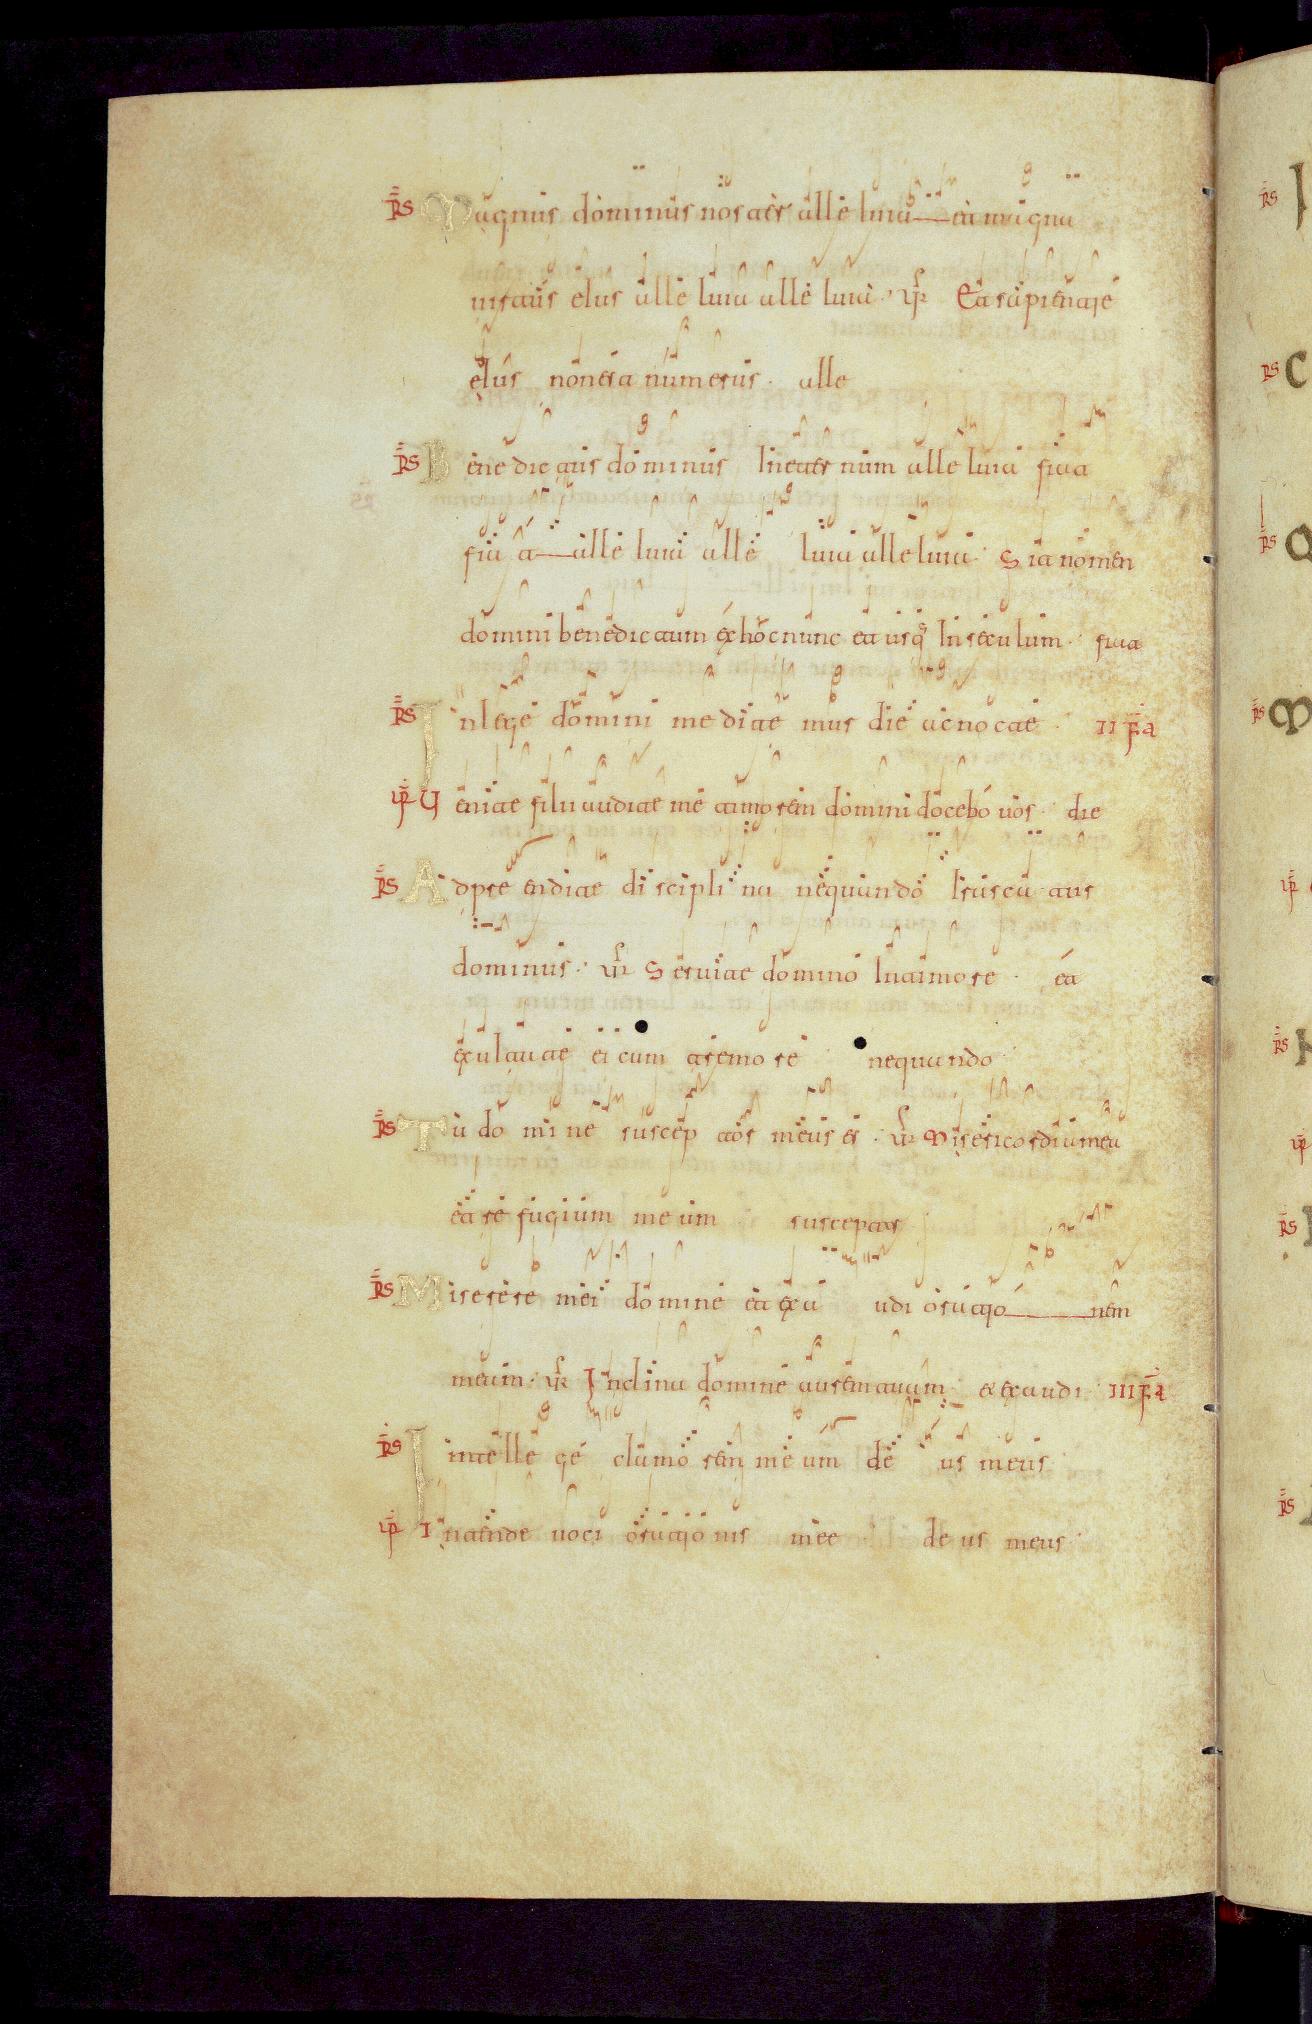 RS Magnus dominus noster alleluia et magna
uirtus eius alleluia alleluia · VR Et sapientie
eius non est numerus · alle
RS Benedictus dominus in eternum alleluia fiat
fiat alleluia alleluia alleluia · Sit nomen
domini benedictum ex hoc nunc et usq in seculum · fiat
RS In lege domini meditate mus die ac nocte · II Pa
VR Uenite filii audite me timorem domini docebo uos · die
RS Adpreendite disciplina nequando irascatus
dominus · VR Seruite domino in timore · et
exultate ei cum tremore nequando
RS Tu domine susceptor meus es · VR Misericordia mea
et refugium meum susceptor
RS Miserere mei domine et exaudi orationem
meam · VR Inclina domine aurem tuam · et exaudi · III Pa
RS Intellege clamorem meum deus meus
VR Intende uoci orationis mee deus meus
RS
RS
RS
RS
VR
RS
VR
RS
RS